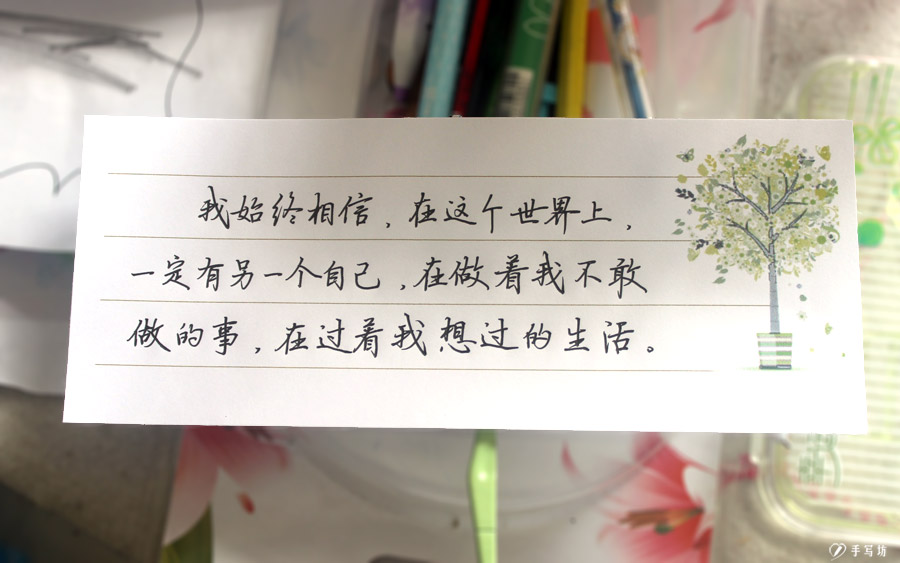 我始终相信,在这个世界上,
一定有另一个自己,在做着我不敢
做的事,在过着我想过的生活。
手写坊